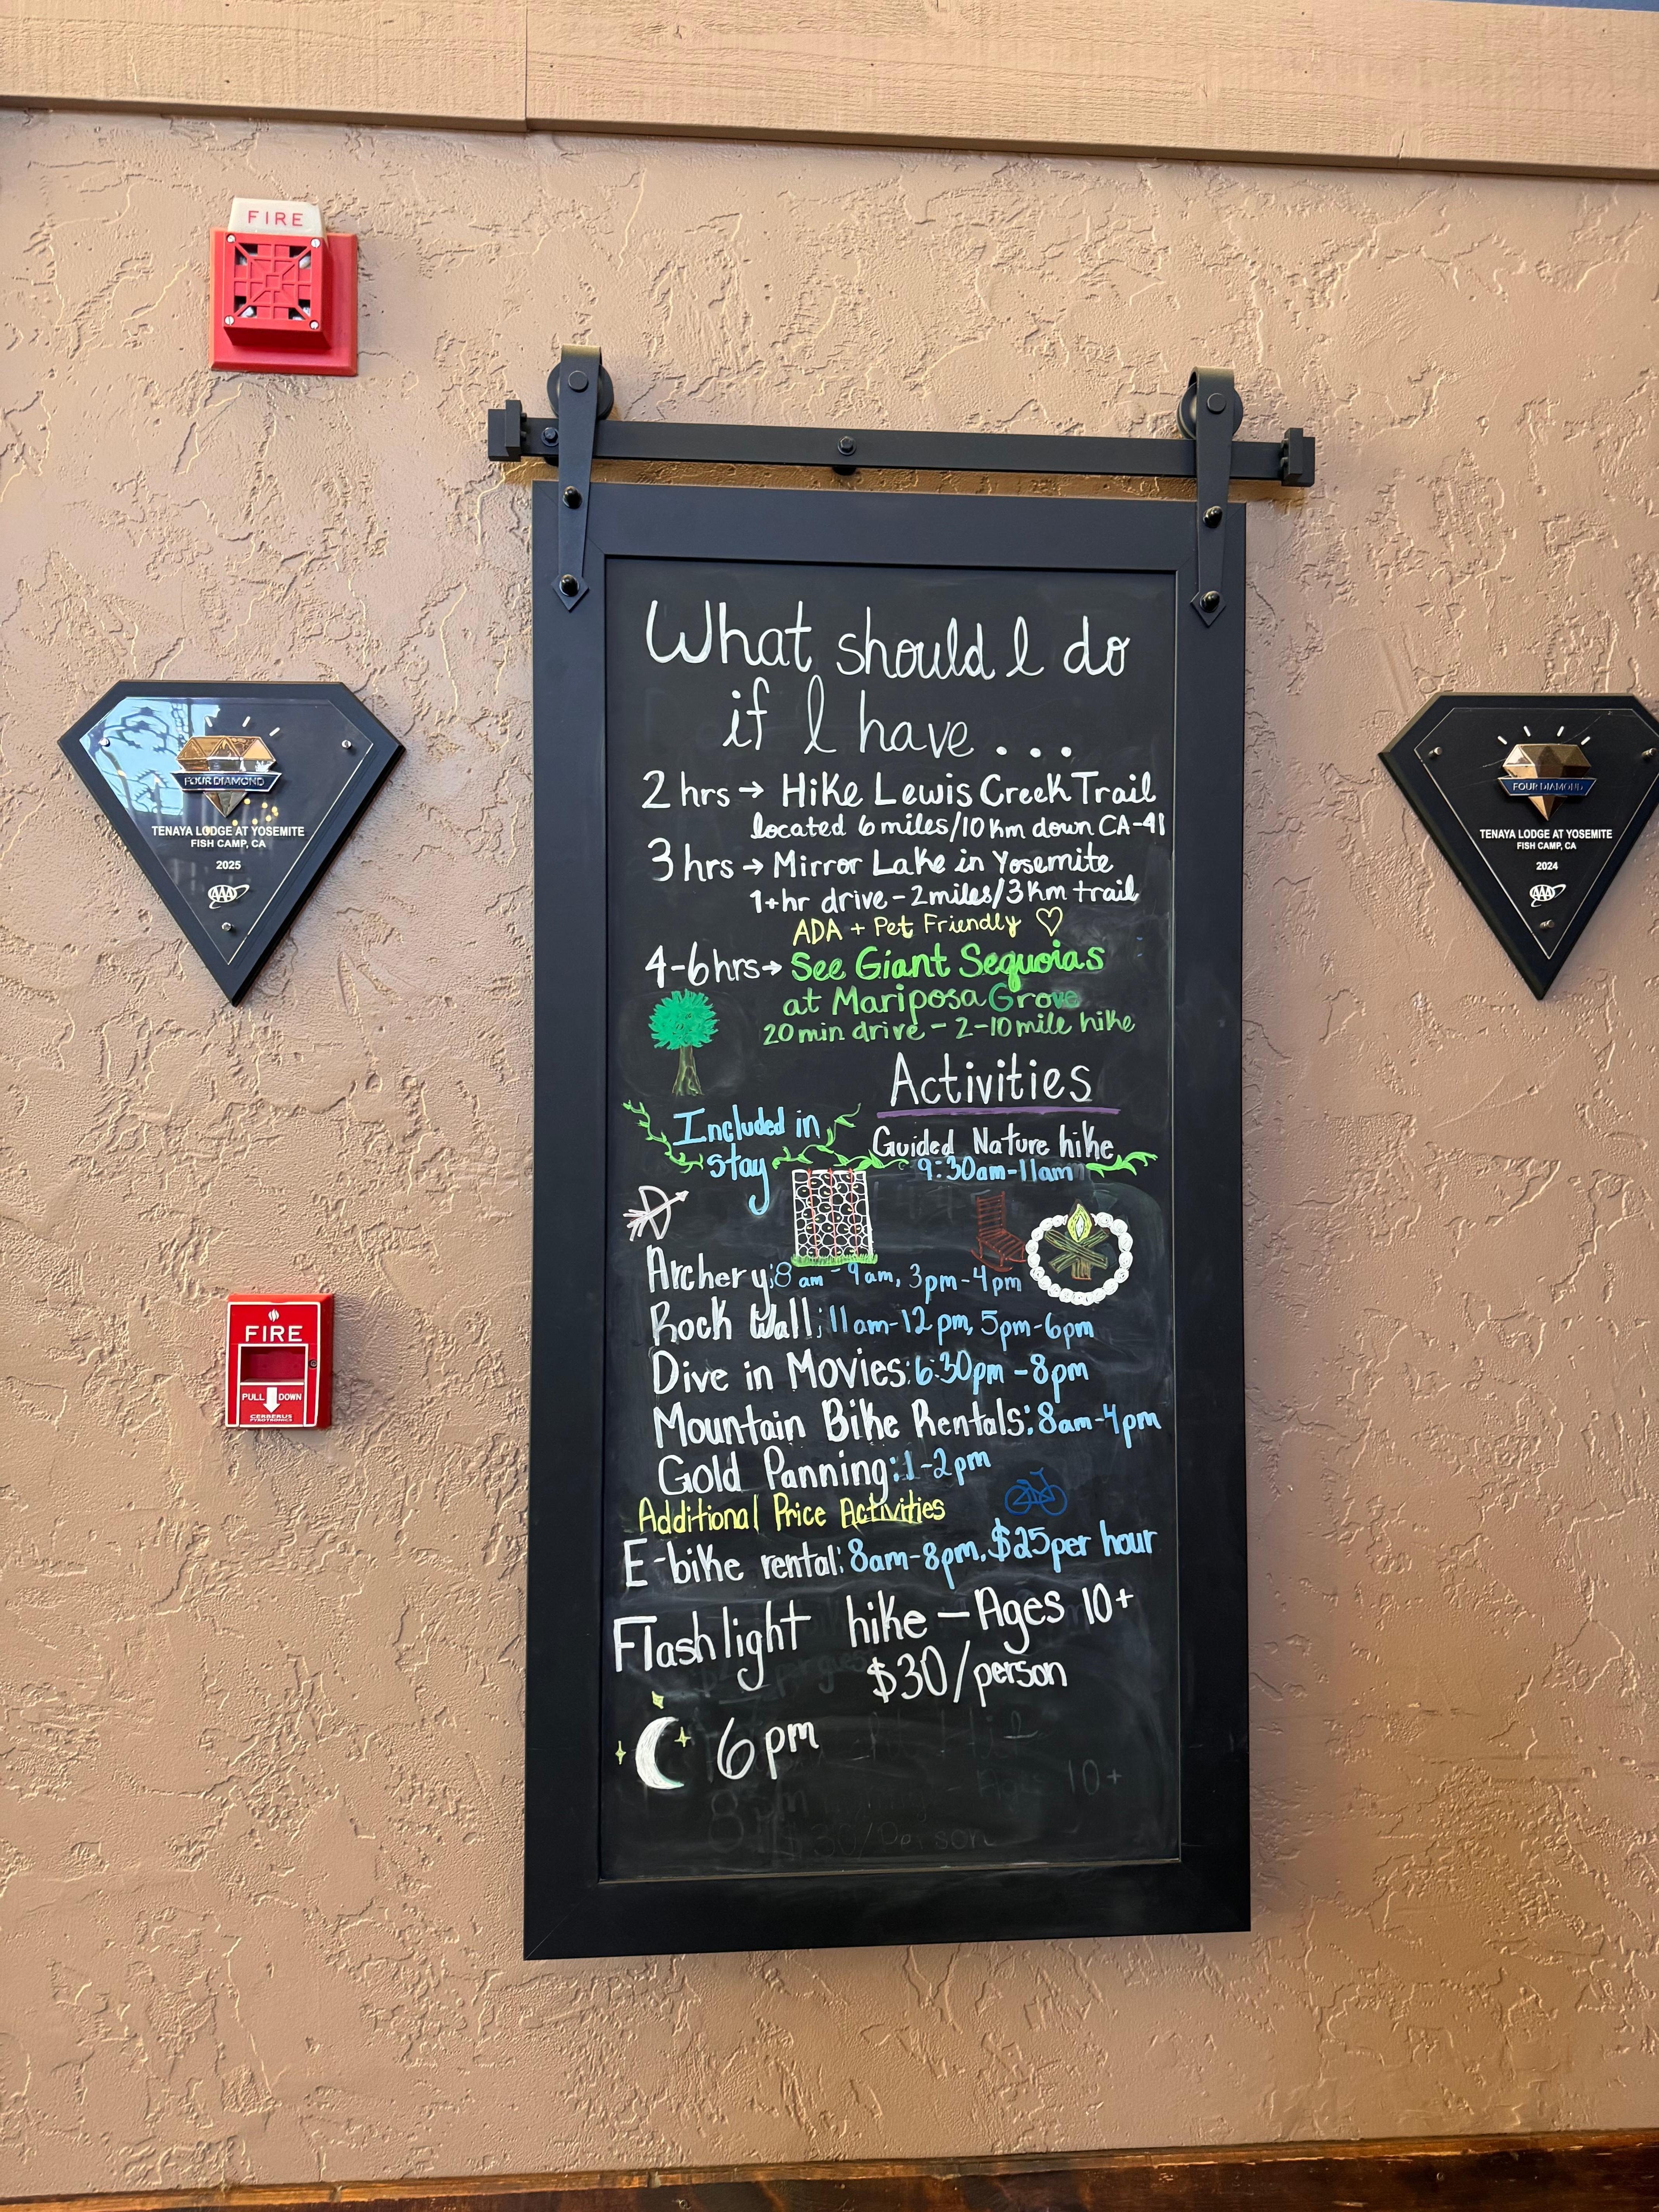 FIRE
What should I do
if I have...
2 hrs → Hike Lewis Creek Trail
located 6 miles/10 km down CA-41
3 hrs → Mirror Lake in Yosemite
1+hr drive - 2 miles/3 km trail
ADA + Pet Friendly ♡
4-6 hrs → See Giant Sequoias
at Mariposa Grove
20 min drive - 2-10 mile hike
Activities
Included in
stay
Guided Nature hike
9:30am-11am
Archery: 8 am - 9 am, 3pm-4pm
Rock Wall: 11am-12pm, 5pm-6pm
Dive in Movies: 6:30pm-8pm
Mountain Bike Rentals: 8am-4pm
Gold Panning: 1-2pm
Additional Price Activities
E-bike rental: 8am-8pm, $25 per hour
Flashlight hike - Ages 10+
$30/person
6pm
10+
8
$30/Person
FOUR DIAMOND
TENAYA LODGE AT YOSEMITE
FISH CAMP, CA
2025
AAA
FOUR DIAMOND
TENAYA LODGE AT YOSEMITE
FISH CAMP, CA
2024
AAA
FIRE
PULL DOWN
CERBERUS
PYROTRONICS